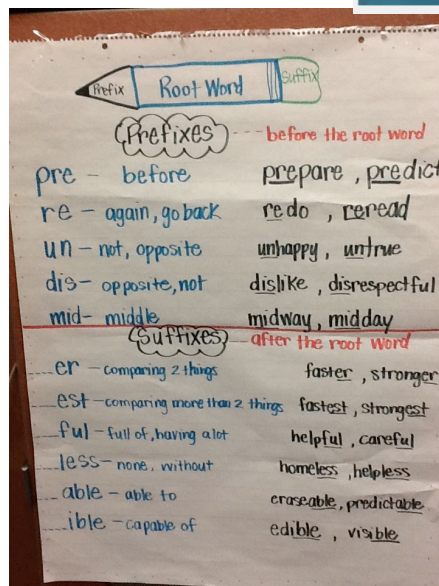 Prefix Root Word Suffix
Prefixes ---- before the root word
pre - before prepare, predict
re - again, go back redo, reread
un - not, opposite unhappy, untrue
dis - opposite, not dislike, disrespectful
mid - middle midway, midday
Suffixes - after the root word
___er - comparing 2 things faster, stronger
___est - comparing more than 2 things fastest, strongest
___ful - full of, having a lot helpful, careful
___less - none, without homeless, helpless
___able - able to eraseable, predictable
___ible - capable of edible, visible